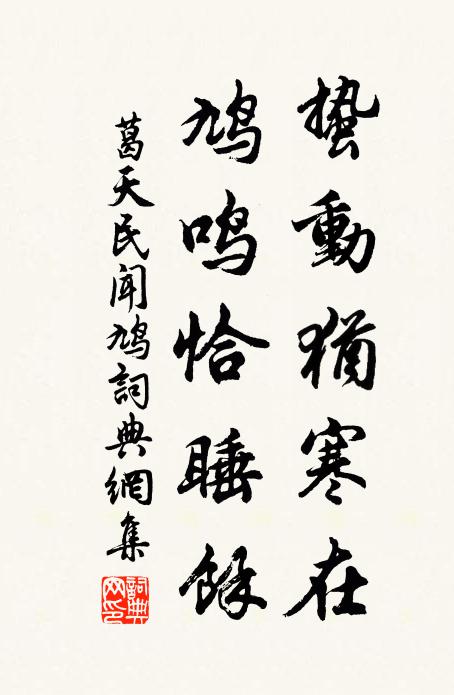 蟄動猶寒在
鳩鳴恰睡餘
葛天民闻鳩詞典網集
詞典網印